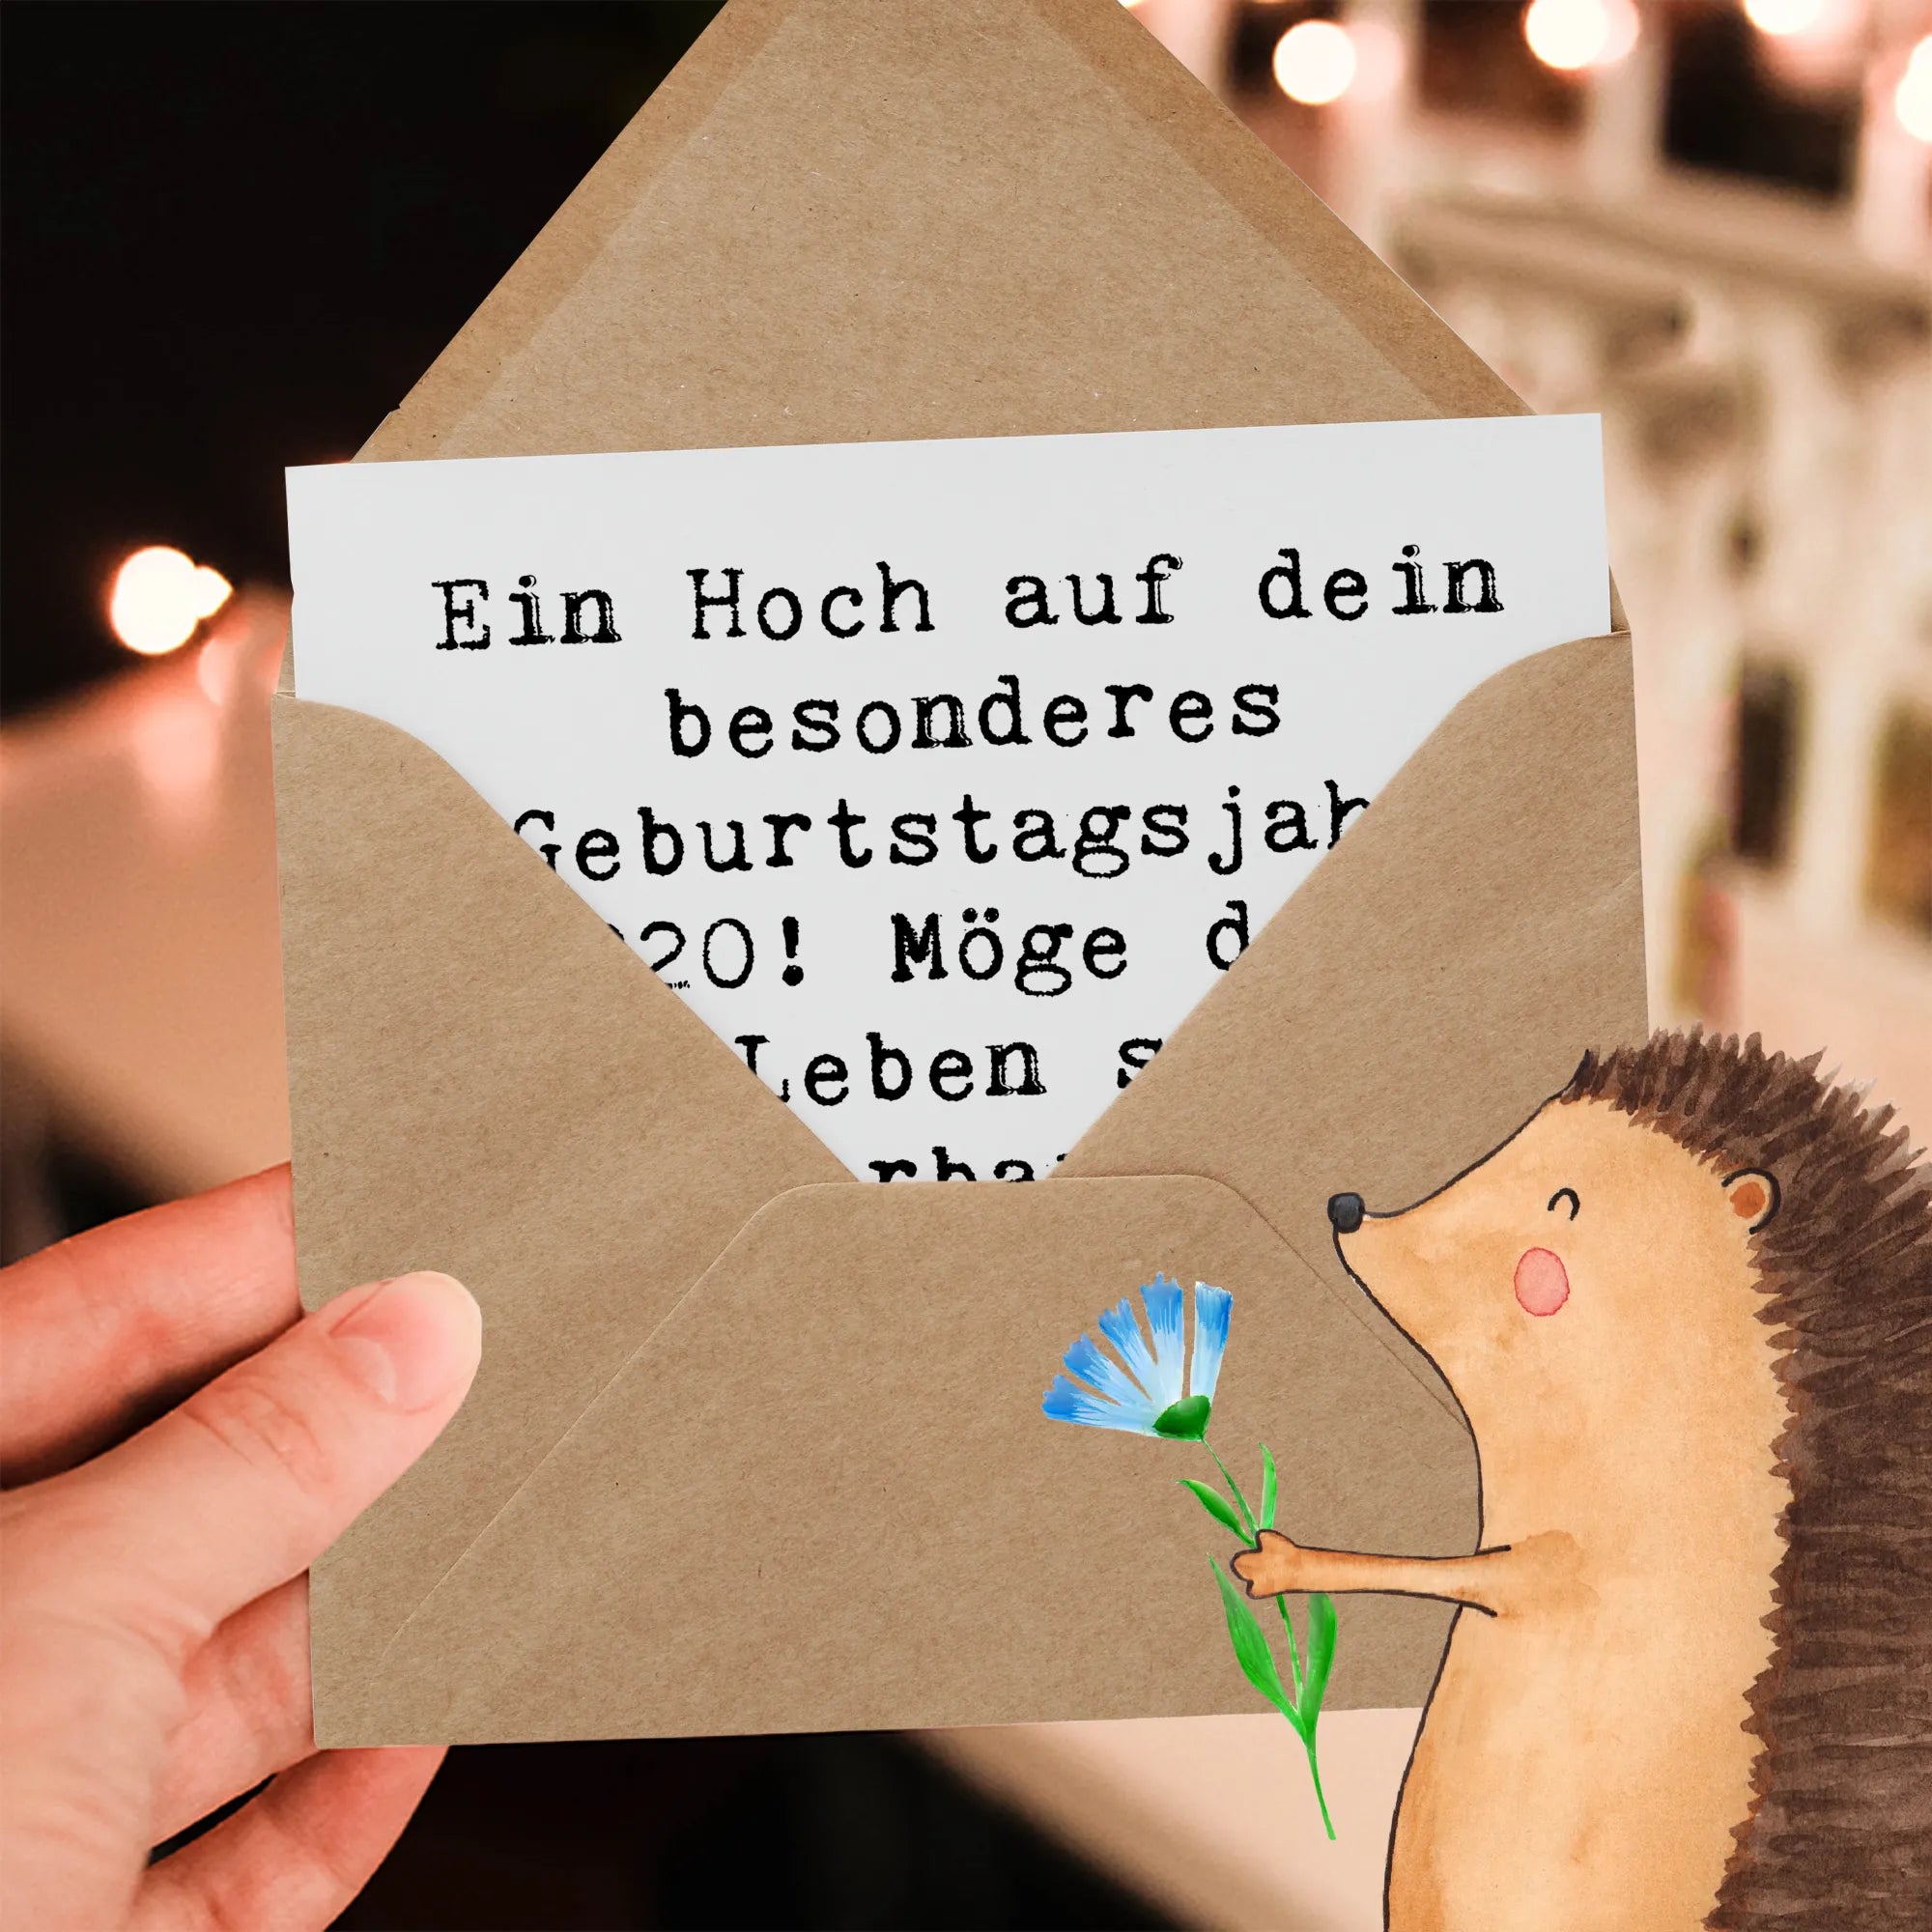 Ein Hoch auf dein
besonderes
Geburtstagsjah
20! Möge
Leben